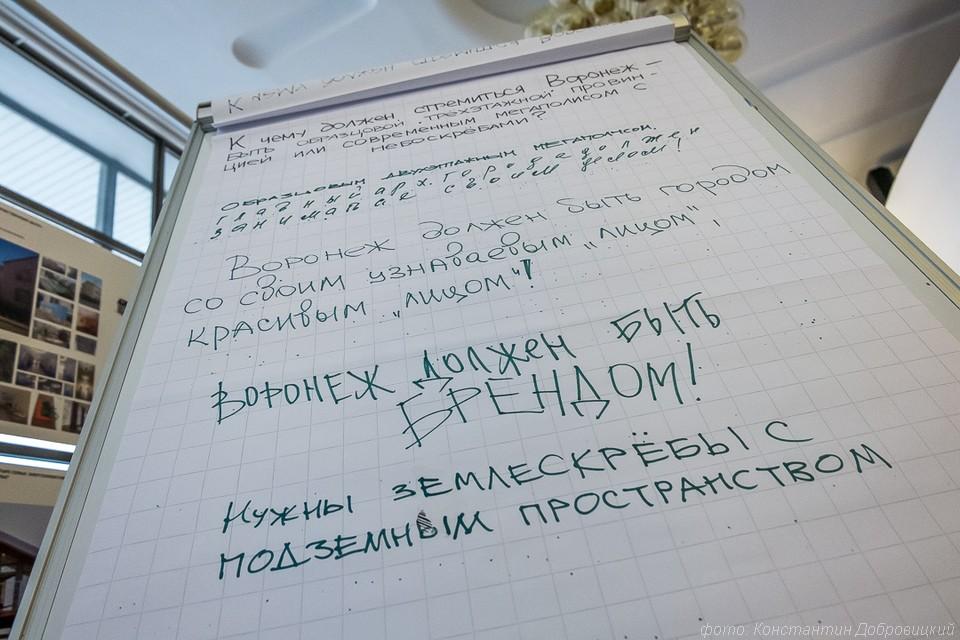 К чему должен стремиться Воронеж —
быть образцовой трёхэтажной провин-
цией или современным мегаполисом с
небоскрёбами?
ОБРАЗЦОВЫМ ДВУХЭТАЖНЫМ МЕГАПОЛИСОМ.
главный арх. города должен
заниматься своим делом!
Воронеж должен быть городом
со своим узнаваемым „лицом",
красивым „лицом"!
ВОРОНЕЖ ДОЛЖЕН БЫТЬ
БРЕНДОМ!
Нужны ЗЕМЛЕСКРЁБЫ С
ПОДЗЕМНЫМ ПРОСТРАНСТВОМ
фото: Константин Добровицкий